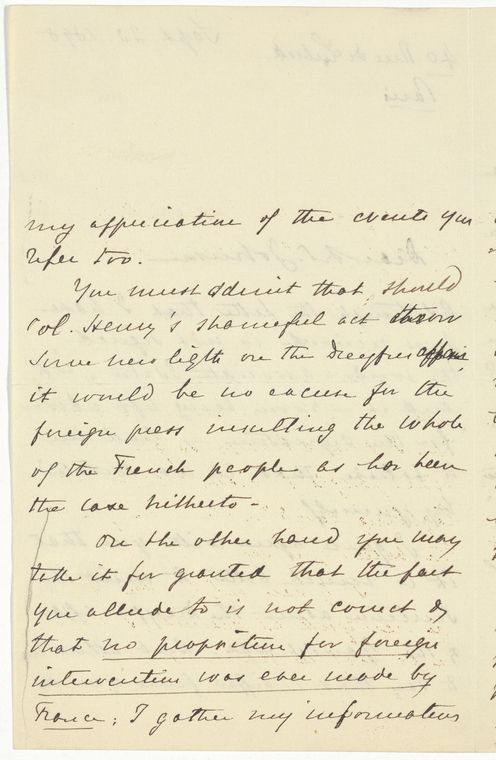 my appreciation of the events you
refer too.
You must admit that should
Col. Henry's shameful act throw
some new ligth on the Dreyfus affair,
it would be no excuse for the
foreign press insulting the whole
of the French people as has been
the case hitherto -
On the other hand you may
take it for granted that the fact
you allude to is not correct &
that no proposition for foreign
intervention was ever made by
France; I gather my informations